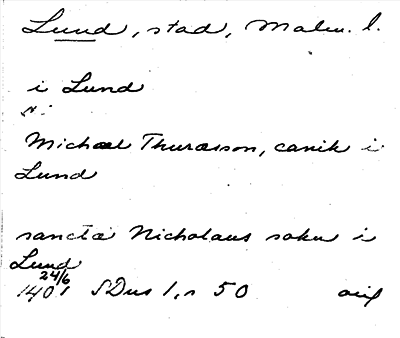 Lund, stad, Malm. l.
i Lund
N:
Michael Thurasson, canik i
Lund
sancta Nicholaus sokn i
Lund
24/6
1401 SDns 1, s 50